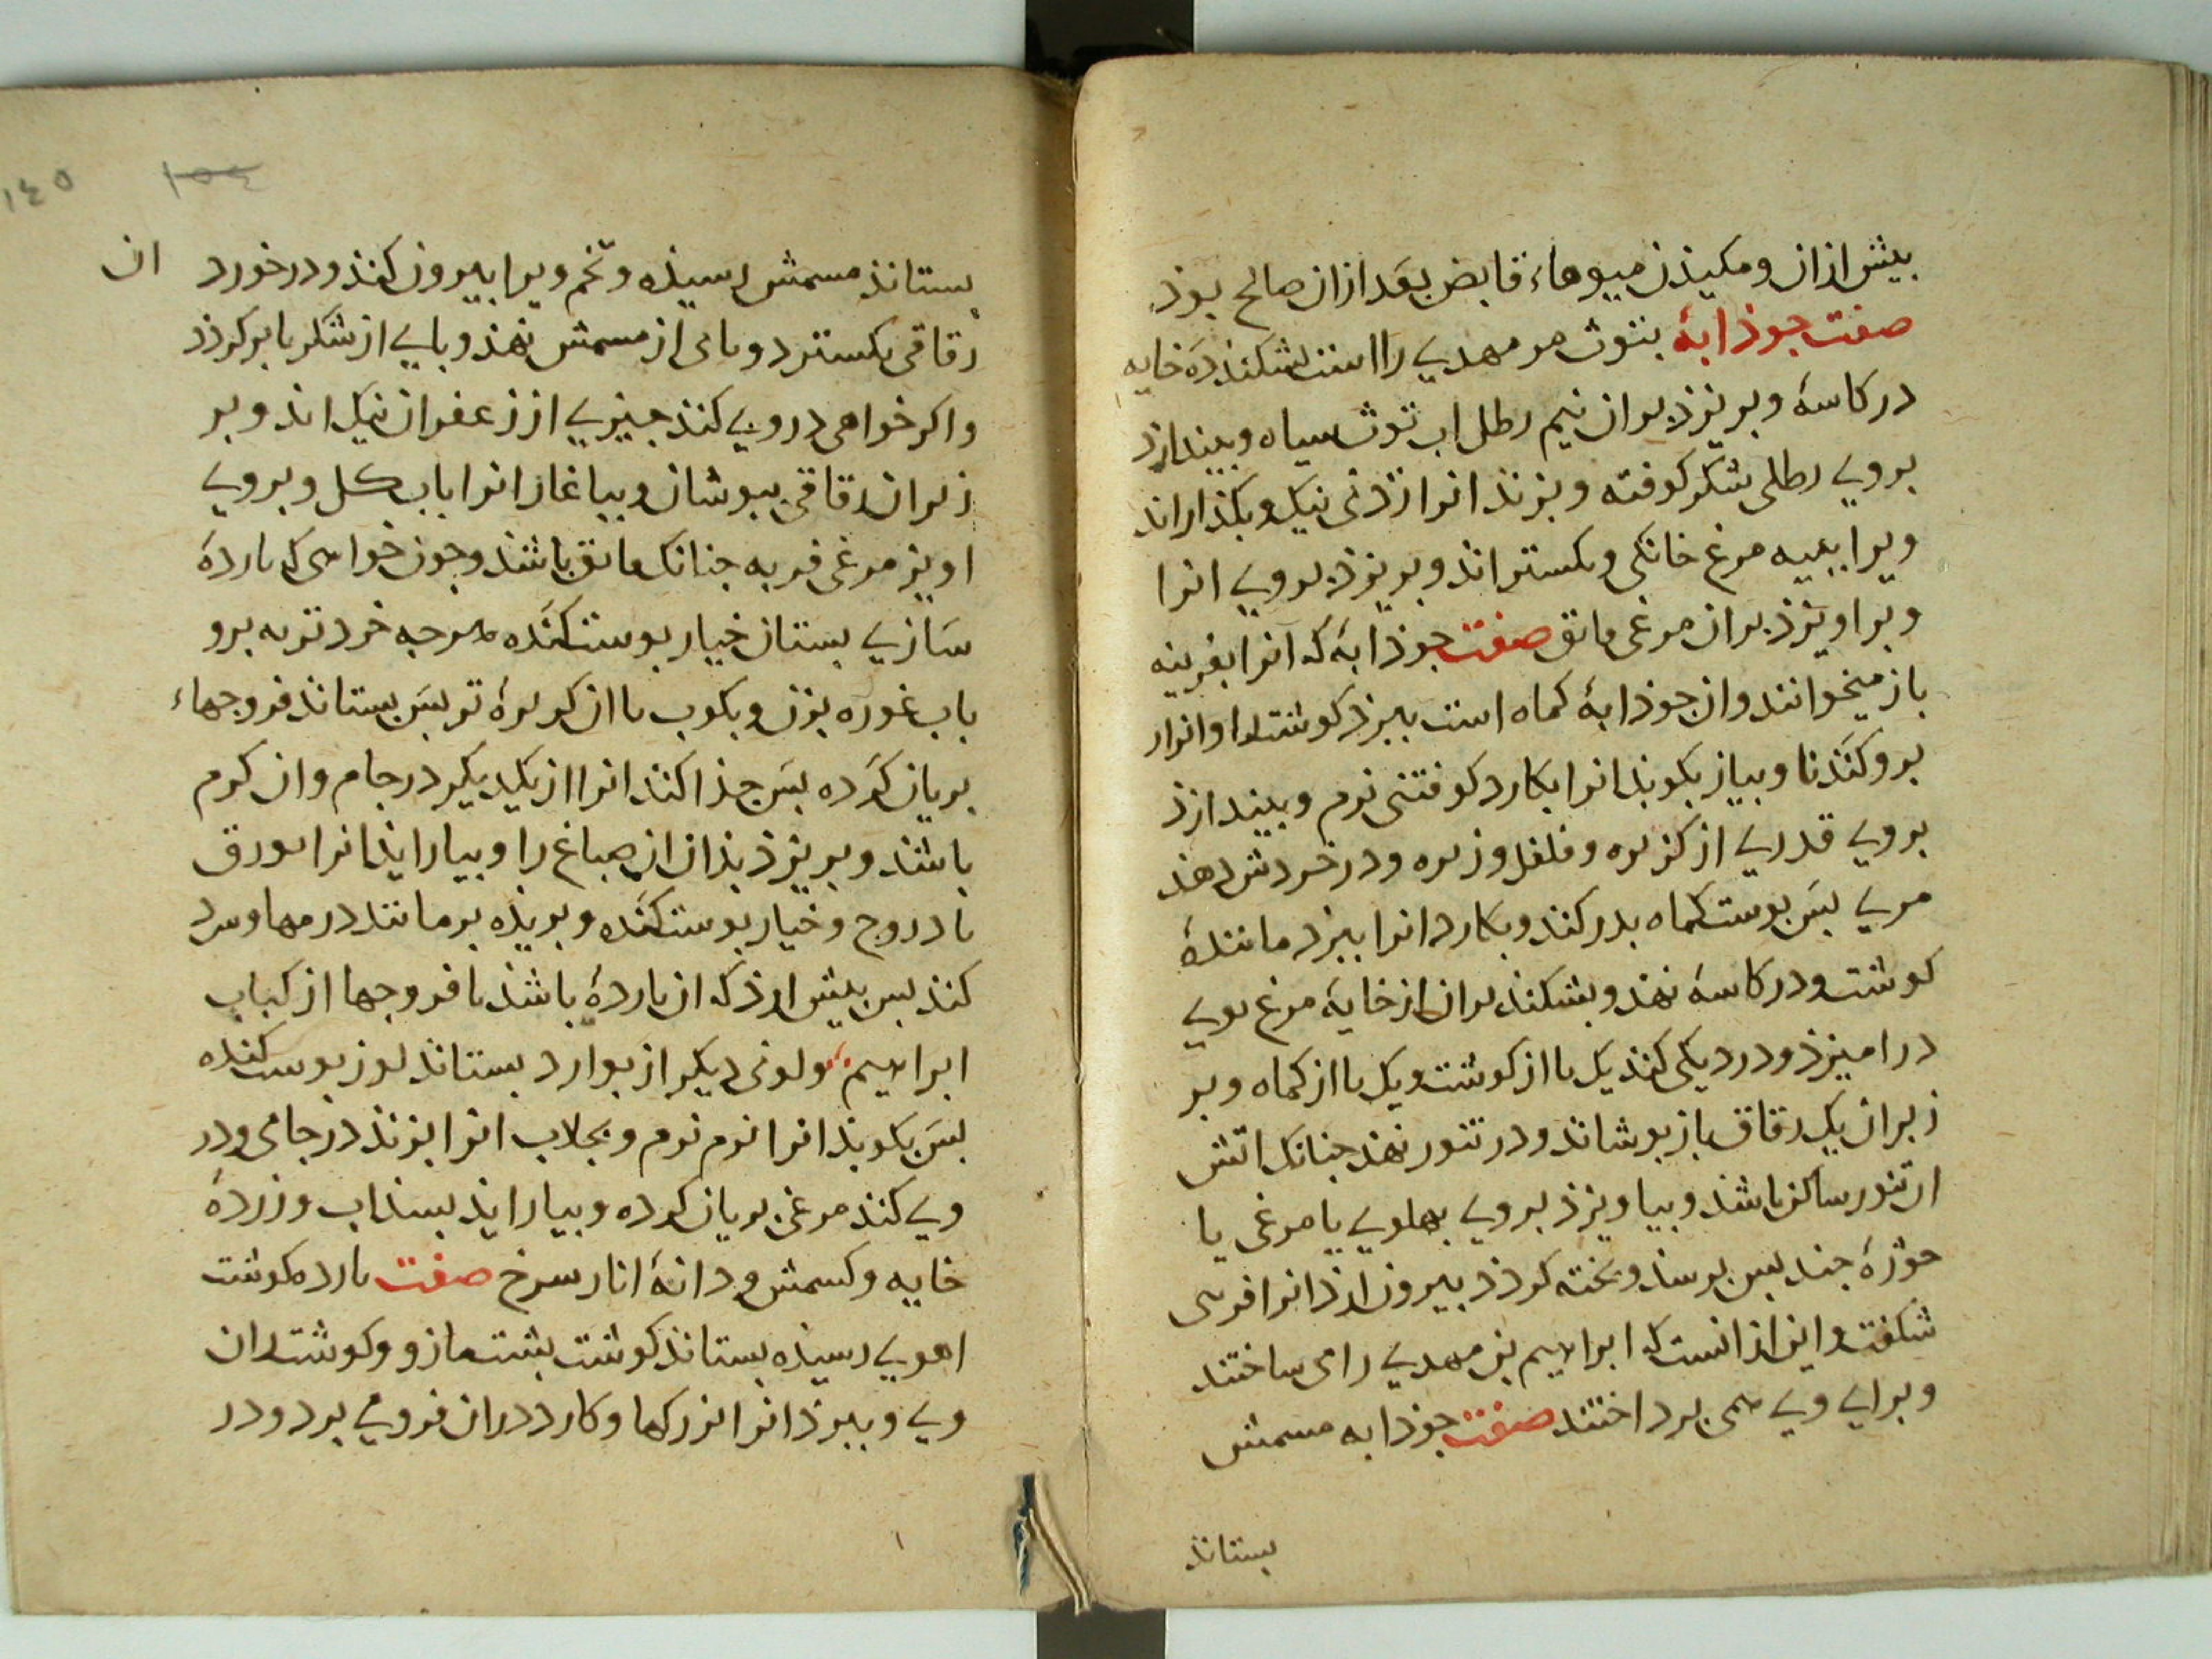 بیش ازان ومکیذن میوهاء قابض بعد ازان صالح بوذ
صفت جوذابهٔ بتوث مر مهدی را است بشکنذ دَه خایه
در کاسهٔ وبریزذ بران نیم رطل اب توث سیاه وبیندازد
بروی رطلی شکر کوفته وبزنذ انرا زذنی نیک وبکذارانذ
ویرا ببیه مرغ خانکی وبکسترانذ وبریزذ بروی انرا
وبراویزذ بران مرغی فایق صفت جوذابهٔ که آنرا بغریبه
باز میخوانند وان جوذابهٔ کماه است ببرذ کوشت را وانرار
برو کندنا وبیاز بکوبذ انرا بکارد کوفتنی نرم وبیندازذ
بروی قدری از کزبره وفلفل وزیره ودر خردش دهند
مری بسَ بوست کماه بدر کند وبکارد انرا ببرذ مانندهٔ
کوشت ودر کاسهٔ نهذ وبشکنذ بران از خایهٔ مرغ بوی
درامیزذ ودر دیکی کند یک با از کوشت ویک با از کماه وبر
زبر ان یک رقاق باز بوشاند ودر تنور نهذ جنانک اتش
ان تنور ساکن باشذ وبیاویزذ بروی بهلوی یا مرغی یا
جوژهٔ جند بس برسذ وبخته کردذ بیرون ارذ انرا فرسی
شکفت واین ازانست که ابراهیم بن مهدی را می ساختند
وبرای وی همی برداختند صفت جوذابه مسمش
بستانذ
١٤٥
بستانذ مسمش رسیذه وتخم ویرا بیرون کند ودر خورد ان
رقاقی بکسترد وبای از مسمش نهذ وبایی از شکر تا بر کردذ
واکر خواهی در وی کنذ جیزی از زعفران نیک اند وبر
زبر ان رقاقی ببوشان وبیاغاز انرا باب کل وبروی
اویز مرغی فربه جنانک فایق باشذ وجون خواهی که باردهٔ
سَازی بستان خیار بوست کنَده هرجه خردتر به برو
باب غوره بزن وبکوب با از کزبرهٔ تر بسَ بستاند فروجهاء
بریان کرَده بسَ جذا کند انرا از یکدیکر در جام وان کرم
باشذ وبریزذ بذان از صباغ را وبیاراید انرا بورق
باذروج وخیار بوست کنَده وبریذه برمانند درمها وسرد
کند بس بیش ارذ که ان باردهٔ باشذ با فروجها از کباب
ابراهیم ولونی دیکر از بوارد بستاند لوز بوست کنده
بسَ بکوبذ انرا نرم نرم وبجلاب انرا بزنذ در جامی ودر
وی کند مرغی بریان کرده وبیاراید بسذاب وزردهٔ
خایه وکسمش ودانهٔ انار سرخ صفت بارده کوشت
اهوی رسیذه بستاند کوشت بشت مازو وکوشت ران
وی وببرذ انرا بزرکها وکارد دران فرو می برد ودر